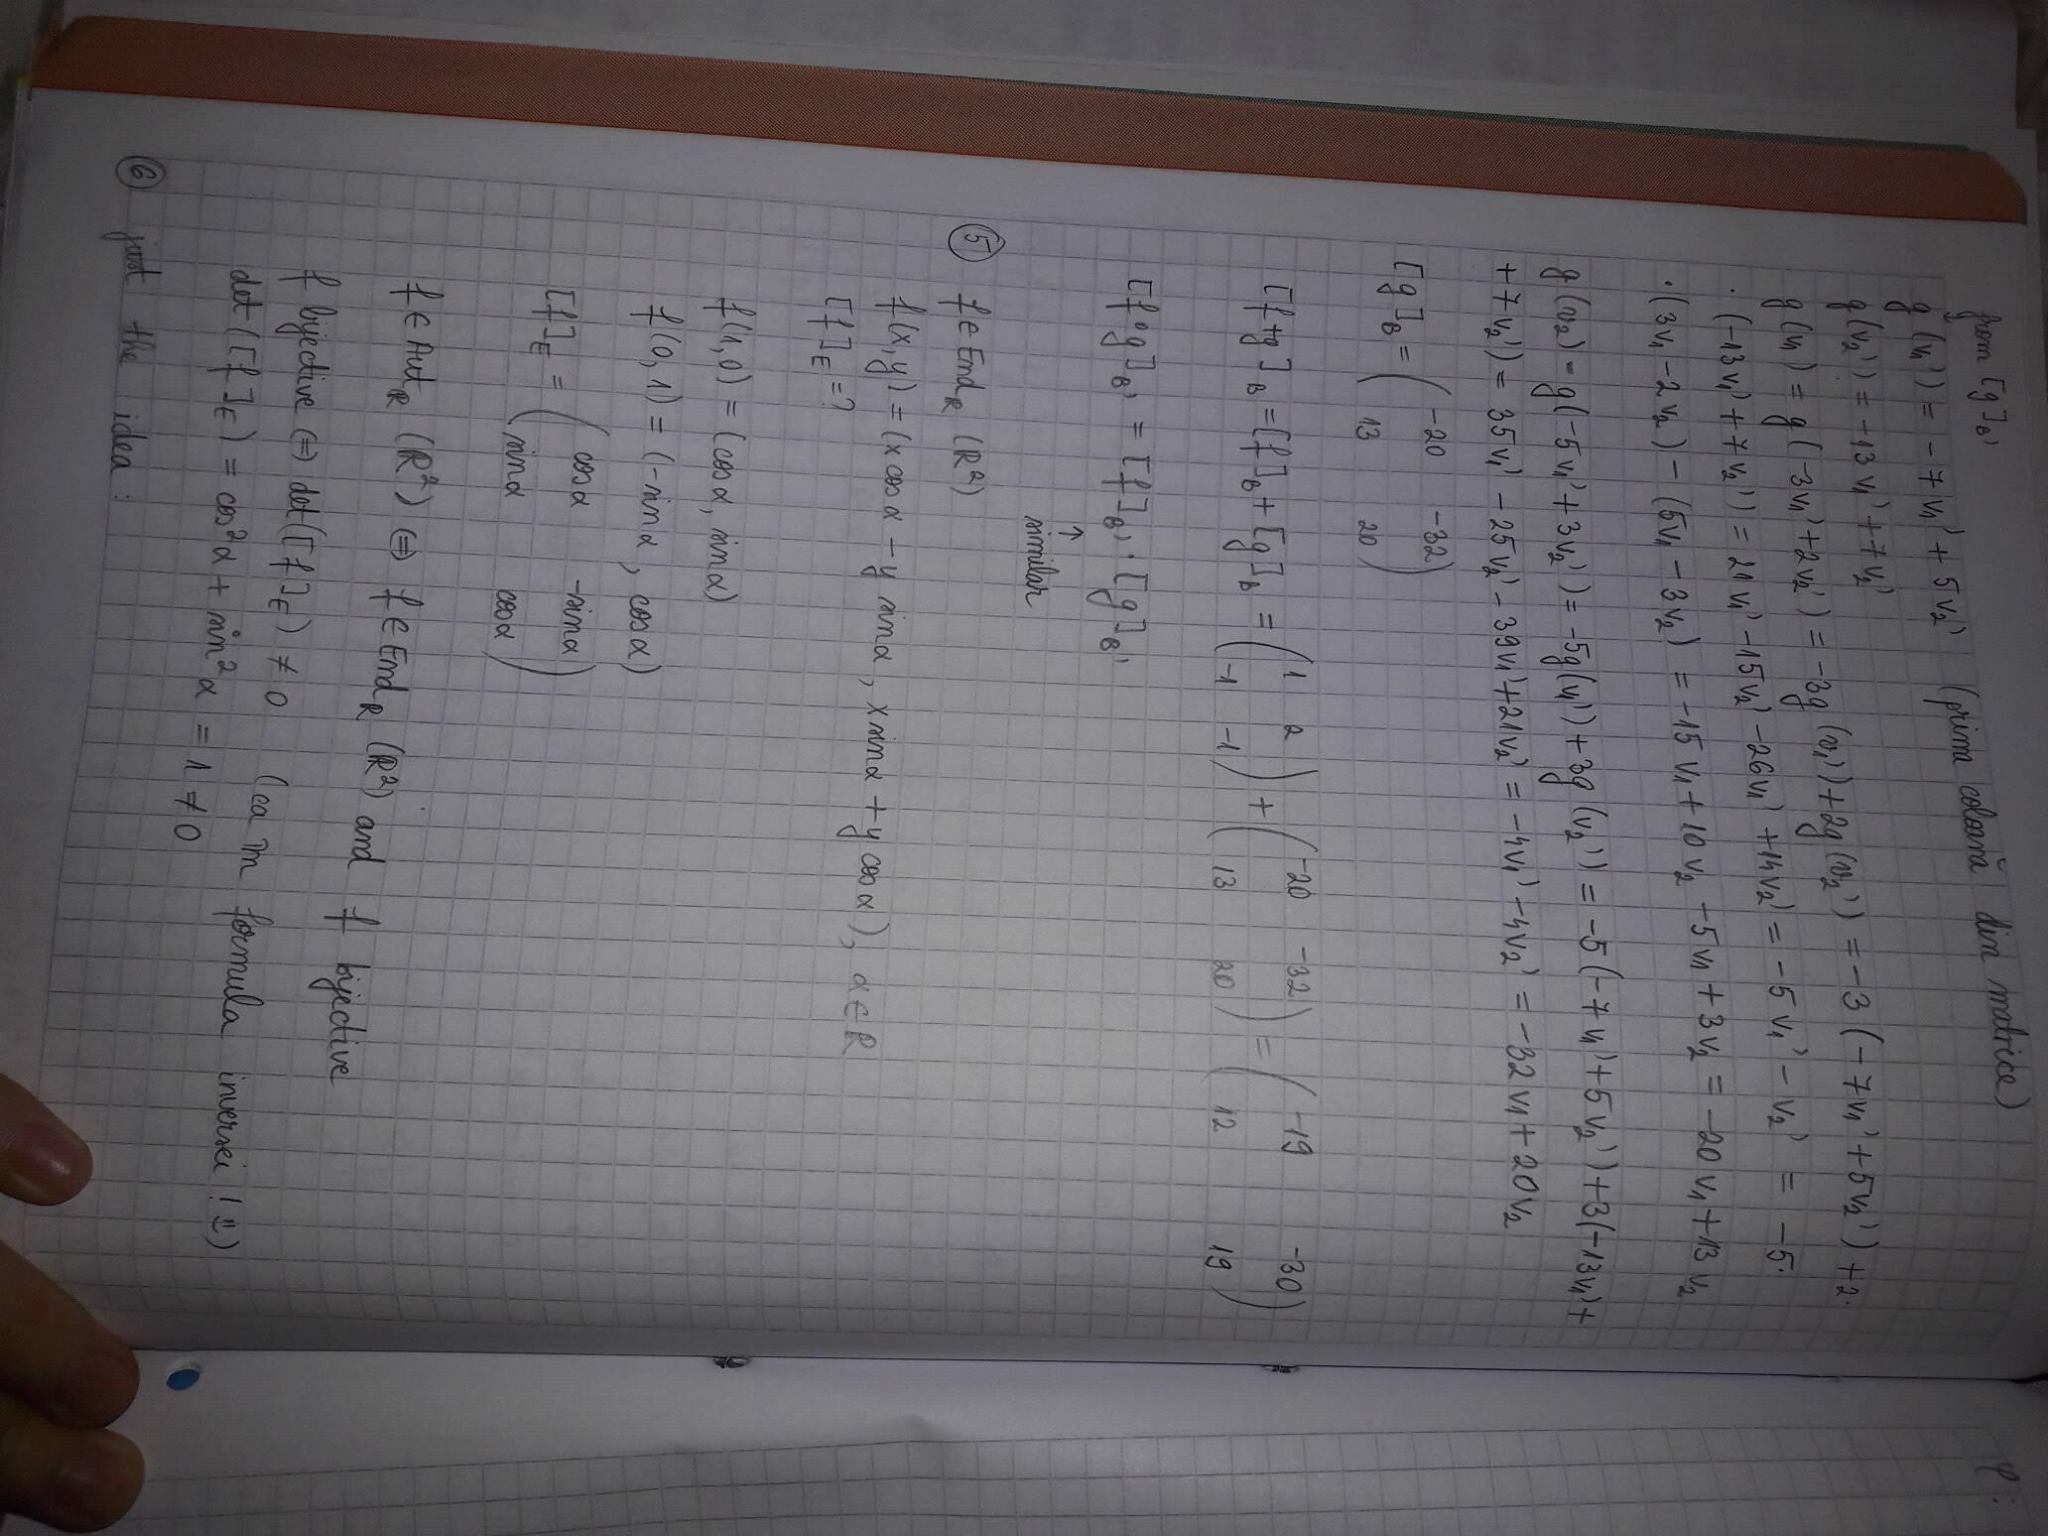 from [g]B'
g(v1') = -7v1' + 5v2' (prima coloană din matrice)
g(v2') = -13v1' + 7v2'
g(v1) = g(-3v1' + 2v2') = -3g(v1') + 2g(v2') = -3(-7v1' + 5v2') + 2·
·(-13v1' + 7v2') = 21v1' - 15v2' - 26v1' + 14v2' = -5v1' - v2' = -5·
·(3v1 - 2v2) - (5v1 - 3v2) = -15v1 + 10v2 - 5v1 + 3v2 = -20v1 + 13v2
g(v2) = g(-5v1' + 3v2') = -5g(v1') + 3g(v2') = -5(-7v1' + 5v2') + 3(-13v1' +
+ 7v2') = 35v1' - 25v2' - 39v1' + 21v2' = -4v1' - 4v2' = -32v1 + 20v2
[g]B = ( -20 -32 )
( 13 20 )
[f+g]B = [f]B + [g]B = ( 1 2 ) + ( -20 -32 ) = ( -19 -30 )
( -1 -1 ) ( 13 20 ) ( 12 19 )
[f∘g]B' = [f]B' · [g]B'
↑
similar
⑤ f ∈ EndR (R²)
f(x,y) = (x cosα - y sinα, x sinα + y cosα), α ∈ R
[f]E = ?
f(1,0) = (cosα, sinα)
f(0,1) = (-sinα, cosα)
[f]E = ( cosα -sinα )
( sinα cosα )
f ∈ AutR (R²) ⇔ f ∈ EndR (R²) and f bijective
f bijective ⇔ det([f]E) ≠ 0 (ca în formula inversei! :))
det([f]E) = cos²α + sin²α = 1 ≠ 0
⑥ just the idea: